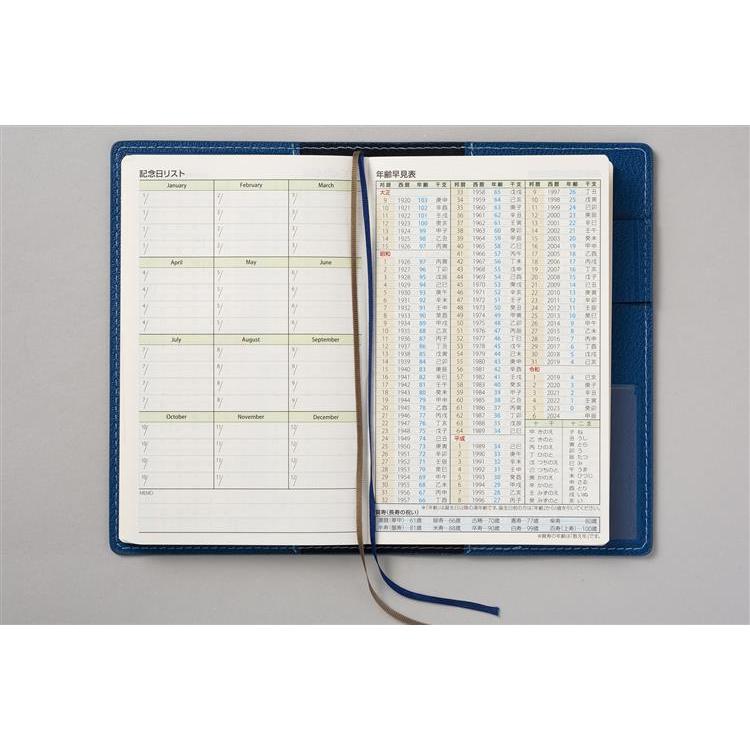 記念日リスト
January February March
1/ 2/ 3/
1/ 2/ 3/
1/ 2/ 3/
1/ 2/ 3/
April May June
4/ 5/ 6/
4/ 5/ 6/
4/ 5/ 6/
4/ 5/ 6/
July August September
7/ 8/ 9/
7/ 8/ 9/
7/ 8/ 9/
7/ 8/ 9/
October November December
10/ 11/ 12/
10/ 11/ 12/
10/ 11/ 12/
10/ 11/ 12/
MEMO
年齢早見表
邦暦 西暦 年齢 干支
大正
9 1920 103 庚申
10 1921 102 辛酉
11 1922 101 壬戌
12 1923 100 癸亥
13 1924 99 甲子
14 1925 98 乙丑
15 1926 97 丙寅
昭和
1 1926 97 丙寅
2 1927 96 丁卯
3 1928 95 戊辰
4 1929 94 己巳
5 1930 93 庚午
6 1931 92 辛未
7 1932 91 壬申
8 1933 90 癸酉
9 1934 89 甲戌
10 1935 88 乙亥
11 1936 87 丙子
12 1937 86 丁丑
13 1938 85 戊寅
14 1939 84 己卯
15 1940 83 庚辰
16 1941 82 辛巳
17 1942 81 壬午
18 1943 80 癸未
19 1944 79 甲申
20 1945 78 乙酉
21 1946 77 丙戌
22 1947 76 丁亥
23 1948 75 戊子
24 1949 74 己丑
25 1950 73 庚寅
26 1951 72 辛卯
27 1952 71 壬辰
28 1953 70 癸巳
29 1954 69 甲午
30 1955 68 乙未
31 1956 67 丙申
32 1957 66 丁酉
邦暦 西暦 年齢 干支
33 1958 65 戊戌
34 1959 64 己亥
35 1960 63 庚子
36 1961 62 辛丑
37 1962 61 壬寅
38 1963 60 癸卯
39 1964 59 甲辰
40 1965 58 乙巳
41 1966 57 丙午
42 1967 56 丁未
43 1968 55 戊申
44 1969 54 己酉
45 1970 53 庚戌
46 1971 52 辛亥
47 1972 51 壬子
48 1973 50 癸丑
49 1974 49 甲寅
50 1975 48 乙卯
51 1976 47 丙辰
52 1977 46 丁巳
53 1978 45 戊午
54 1979 44 己未
55 1980 43 庚申
56 1981 42 辛酉
57 1982 41 壬戌
58 1983 40 癸亥
59 1984 39 甲子
60 1985 38 乙丑
61 1986 37 丙寅
62 1987 36 丁卯
63 1988 35 戊辰
64 1989 34 己巳
平成
1 1989 34 己巳
2 1990 33 庚午
3 1991 32 辛未
4 1992 31 壬申
5 1993 30 癸酉
6 1994 29 甲戌
7 1995 28 乙亥
8 1996 27 丙子
邦暦 西暦 年齢 干支
9 1997 26 丁丑
10 1998 25 戊寅
11 1999 24 己卯
12 2000 23 庚辰
13 2001 22 辛巳
14 2002 21 壬午
15 2003 20 癸未
16 2004 19 甲申
17 2005 18 乙酉
18 2006 17 丙戌
19 2007 16 丁亥
20 2008 15 戊子
21 2009 14 己丑
22 2010 13 庚寅
23 2011 12 辛卯
24 2012 11 壬辰
25 2013 10 癸巳
26 2014 9 甲午
27 2015 8 乙未
28 2016 7 丙申
29 2017 6 丁酉
30 2018 5 戊戌
31 2019 4 己亥
令和
1 2019 4 己亥
2 2020 3 庚子
3 2021 2 辛丑
4 2022 1 壬寅
5 2023 0 癸卯
6 2024 甲辰
十 干 十 二 支
甲 きのえ 子 ね
乙 きのと 丑 うし
丙 ひのえ 寅 とら
丁 ひのと 卯 う
戊 つちのえ 辰 たつ
己 つちのと 巳 み
庚 かのえ 午 うま
辛 かのと 未 ひつじ
壬 みずのえ 申 さる
癸 みずのと 酉 とり
戌 いぬ
亥 い
＊「年齢」は誕生日以降の満年齢です。誕生日前の方は「年齢」から1歳を引いてください。
賀寿(長寿の祝い)
還暦(華甲)―61歳 緑寿―66歳 古稀―70歳 喜寿―77歳 傘寿―80歳
半寿(盤寿)―81歳 米寿―88歳 卒寿―90歳 白寿―99歳 百寿(上寿)―100歳
※賀寿の年齢は「数え年」です。